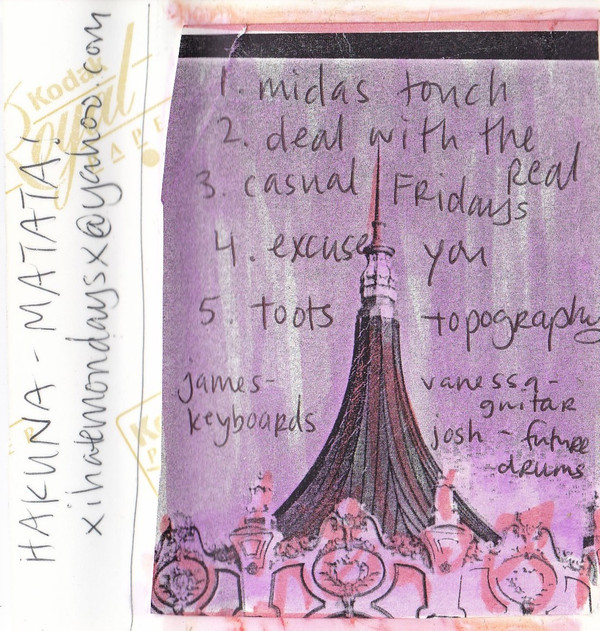 1. midas touch
2. deal with the Real
3. casual Fridays
4. excuse you
5. toots topography
james-
keyboards
vanessa-
guitar
josh - future
-drums
HAKUNA-MATATA!
xihatemondaysx@yahoo.com
Kodak
Royal
PAPER